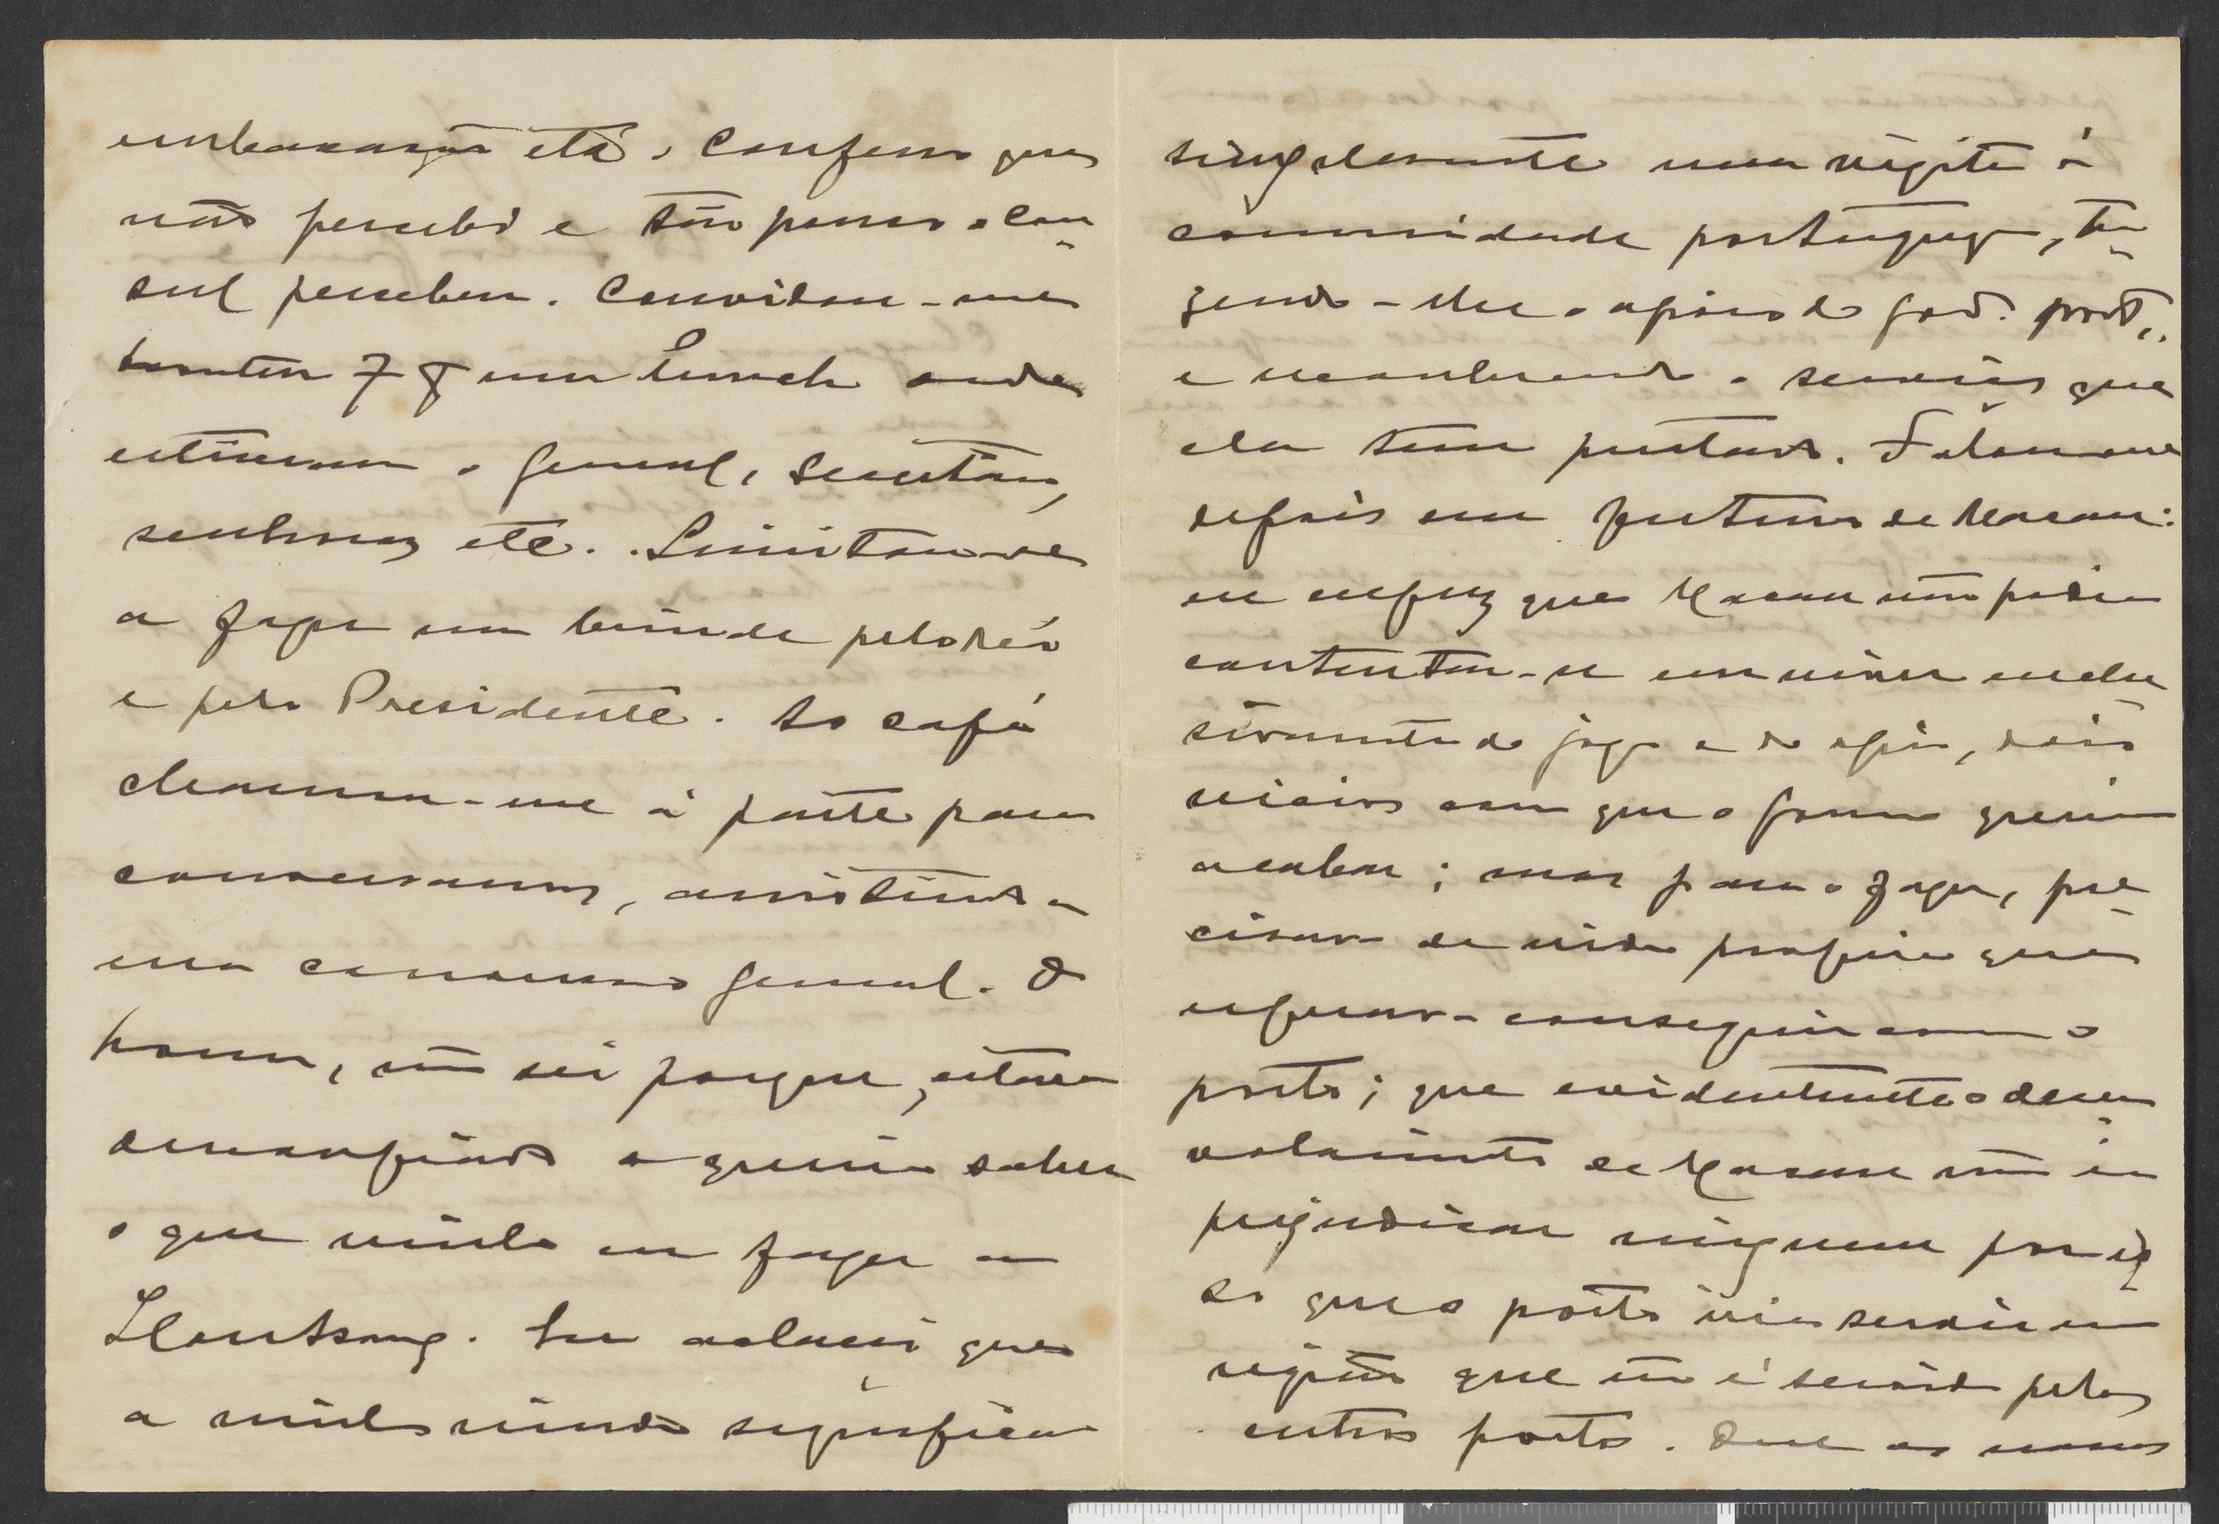 embaraçar etc. Confesso que
não percebi e tão pouco o Con-
sul percebeu. Convidou-me
tambem para um lunch onde
estiveram o General, Secretario,
senhoras etc. Limitou-se
a fazer um brinde pelo Rei
e pelo Presidente. Ao café
chamou-me á parte para
conversarmos, assistindo a
essa conversa o General. O
homem, não sei porque, estava
desconfiado e queria saber
o que vinha eu fazer a
Shantung. Eu aclarei que
a minha vinda significava
singelamente uma visita á
comunidade portugueza, tra-
zendo-lhe o apoio do Gov. port.
e reconhecendo o serviço que
ela tem prestado. Falou-me
depois no futuro de Macau:
eu expuz que Macau não podia
contentar-se em viver exclu-
sivamente do jogo e do opio, dois
vicios com que o Governo queria
acabar; mas para o fazer, pre-
cisava de vida propria que
esperava conseguir com o
porto; que evidentemente o desen-
volvimento de Macau não ia
prejudicar ninguem por is-
so que o porto iria servir uma
região que não é servida pelos
outros portos. Que os nossos